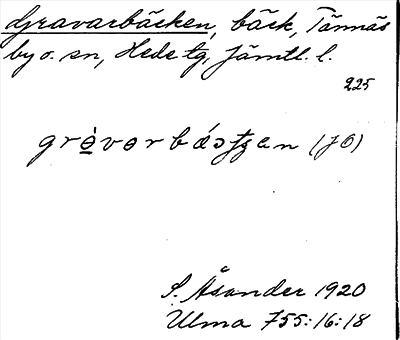 Gravarbäcken, bäck, Tännäs
by o. sn, Hede tg, Jämtl. l.
225
(JÖ)
S. Åsander 1920
Ulma 755:16:18